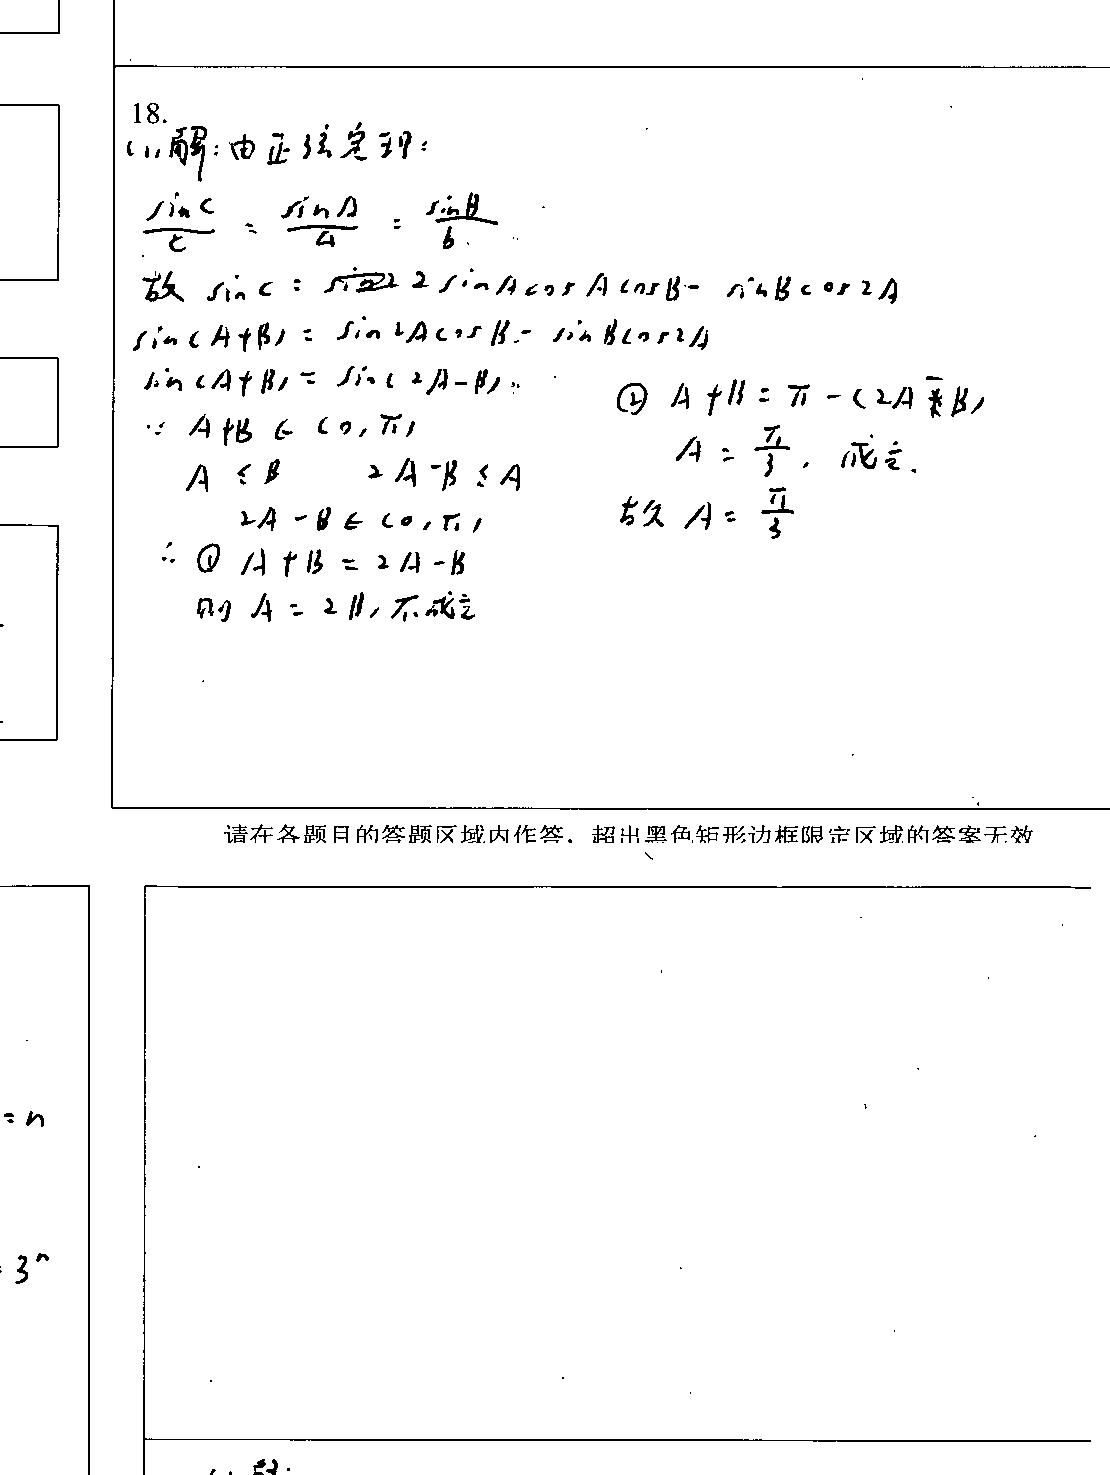 18.
(1)解:由正弦定理:
sinC/c = sinA/a = sinB/b
故 sinC = 2sinAcosAcosB - sinBcos2A
sin(A+B) = sin2AcosB - sinBcos2A
sin(A+B) = sin(2A-B)
∵ A+B ∈ (0,π)
A ≤ B 2A-B ≤ A
2A-B ∈ (0,π)
∴ ① A+B = 2A-B
则 A = 2B,不成立
② A+B = π-(2A-B)
A = π/3,成立.
故 A = π/3
请在各题目的答题区域内作答,超出黑色矩形边框限定区域的答案无效
= n
= 3ⁿ